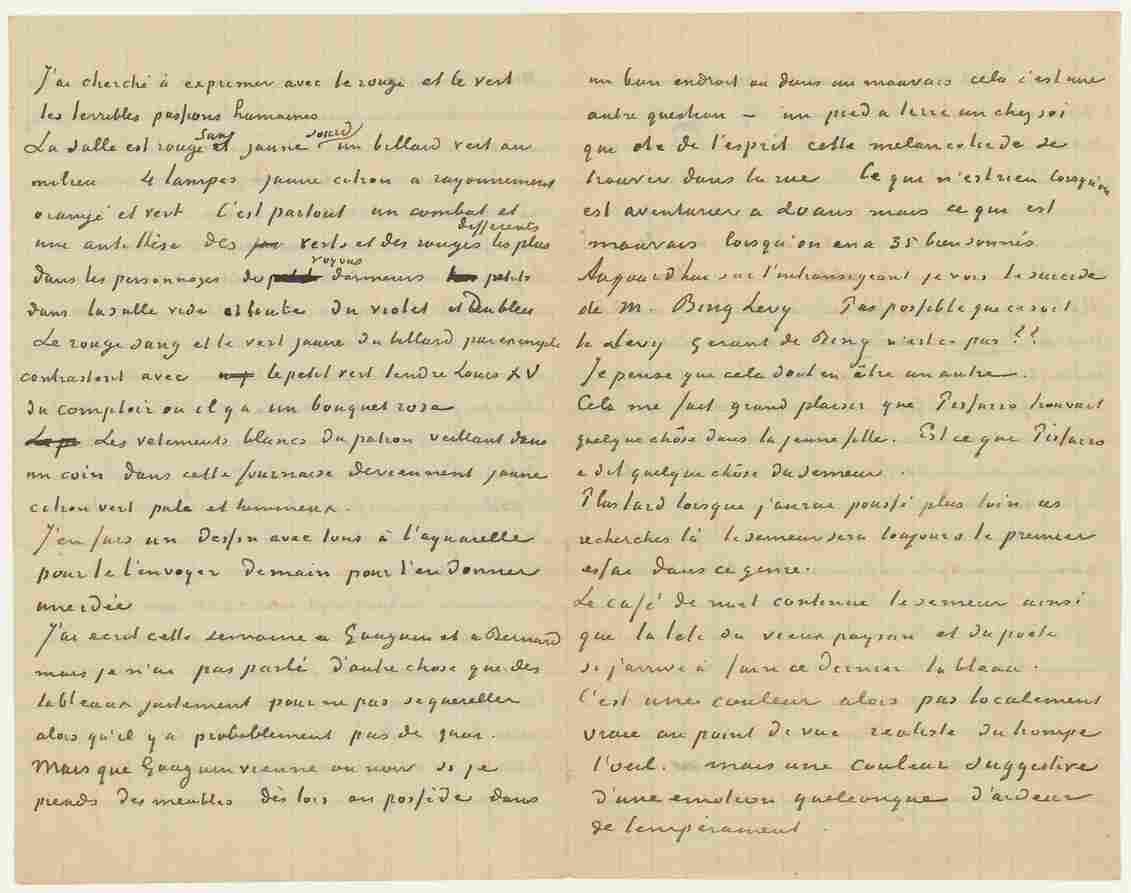 J'ai cherché à exprimer avec le rouge et le vert
les terribles passions humaines
La salle est rouge sang et jaune sourd un billard vert au
milieu 4 lampes jaune citron a rayonnement
orangé et vert C'est partout un combat et
une antithèse des verts et des rouges les plus differents
dans les personnages de voyous dormeurs petits
dans la salle vide et haute du violet et du bleu
Le rouge sang et le vert jaune du billard par exemple
contrastent avec le petit vert tendre Louis XV
du comptoir ou il y a un bouquet rose
Les vetements blancs du patron veillant dans
un coin dans cette fournaise deviennent jaune
citron vert pale et lumineux.
J'en fais un dessin avec tons à l'aquarelle
pour te l'envoyer demain pour t'en donner
une idée
J'ai ecrit cette semaine a Gauguin et a Bernard
mais je n'ai pas parlé d'autre chose que des
tableaux justement pour ne pas se quereller
alors qu'il y a probablement pas de quoi.
Mais que Gauguin vienne ou non si je
prends des meubles dès lors on possède dans
un bon endroit ou dans un mauvais cela c'est une
autre question – un pied a terre un chez soi
qui ote de l'esprit cette melancolie de se
trouver dans la rue Ce qui n'est rien lorsqu'on
est aventurier a 20 ans mais ce qui est
mauvais lorsqu'on en a 35 bien sonnés
Aujourd'hui sur l'intransigeant je vois le suicide
de M. Bing Levy Pas possible que ce soit
le Levy gerant de Bing n'est ce pas ??
Je pense que cela doit en être un autre.
Cela me fait grand plaisir que Pissarro trouvait
quelque chôse dans la jeune fille. Est ce que Pissarro
a dit quelque chôse du semeur.
Plus tard lorsque j'aurai poussé plus loin ces
recherches là le semeur sera toujours le premier
essai dans ce genre.
Le café de nuit continue le semeur ainsi
que la tete du vieux paysan et du poete
si j'arrive à faire ce dernier tableau.
C'est une couleur alors pas localement
vraie au point de vue realiste du trompe
l'oeil. mais une couleur suggestive
d'une emotion quelconque d'ardeur
de tempérament.